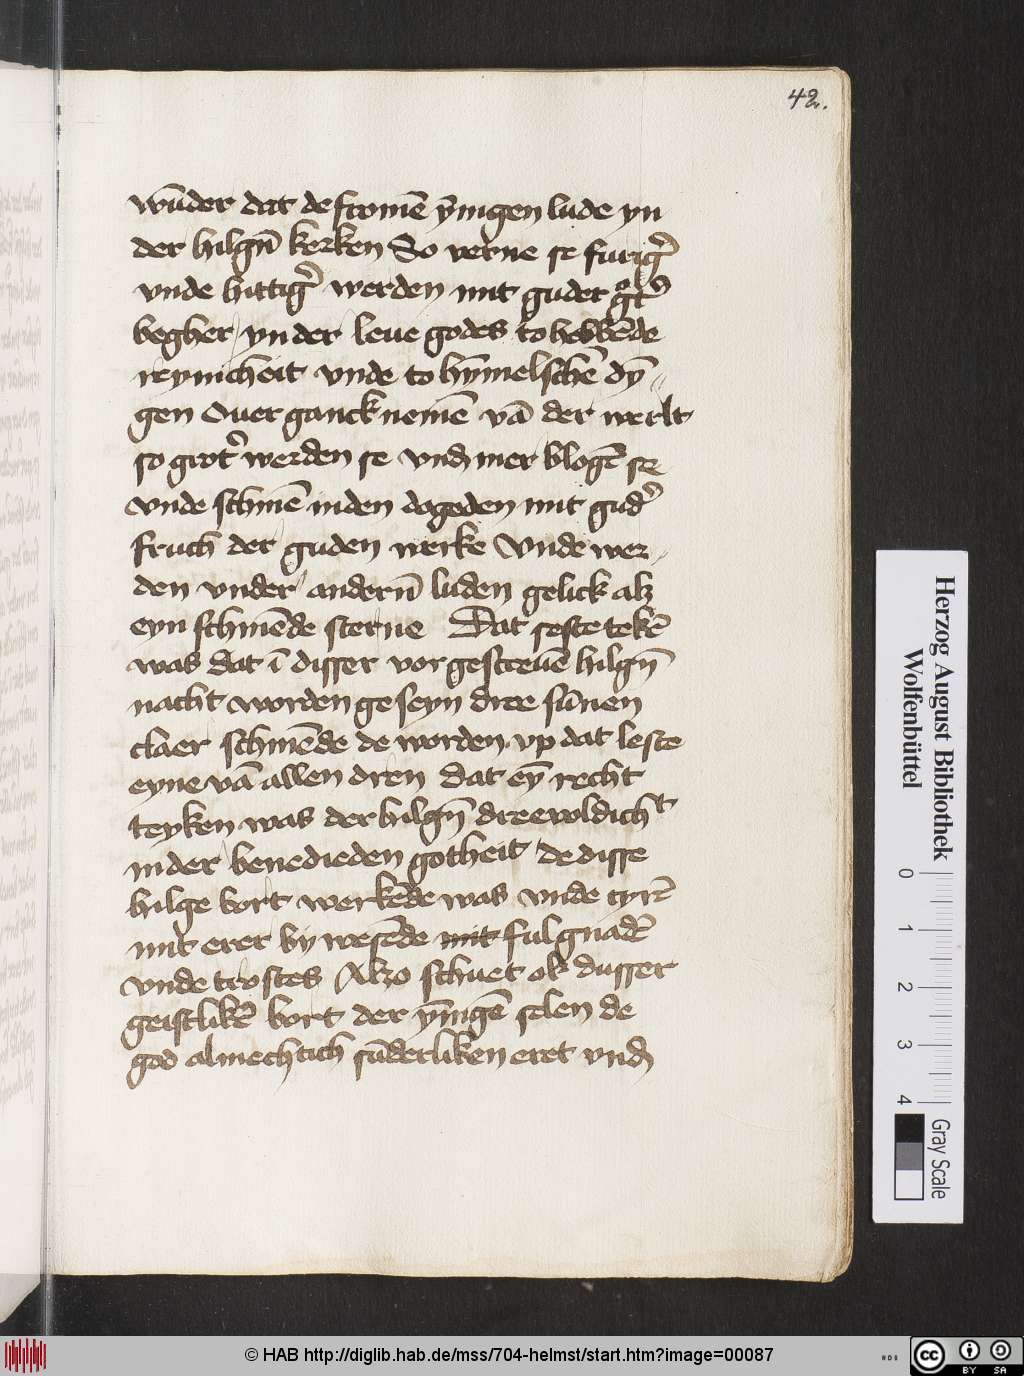 42.
wūder dat de fromē ȳnigen lude yn
der hilgn̄ kerken So verne se furig͛
vnde hittig͛ werden mit guder
begher yn der leue godes to hebbēde
reynicheit vnde to hȳmelschē dȳ⸗
gen Ouer ganck nemē vā der werlt
so grot͛ werden se vnd mer blogē se
vnde schinē in den dogeden mit gud͛
fruch der guden werke Vnde wer⸗
den vnder andern̄ luden gelick alz
eyn schinēde sterne Dat seste tekē
was dat ī disser vorgescreuē hilgn̄
nacht worden geseyn dree sūnen
claer schinēde de worden vp dat leste
eyne vā allen dren dat eȳ recht
teyken was der hilgn̄ dreevoldichᵗ
in der benedieden gotheit de disse
hilge bort werkēde was vnde
mit erer by wesēde mit ful gnadē
vnde trostes Alzo schuet ok dusser
geistlikē bort der ȳnigē selen de
god almechtich sūderliken eret vnd
Herzog August Bibliothek
Wolfenbüttel
0 1 2 3 4
Gray Scale
© HAB http://diglib.hab.de/mss/704-helmst/start.htm?image=00087
HAB
cc BY SA